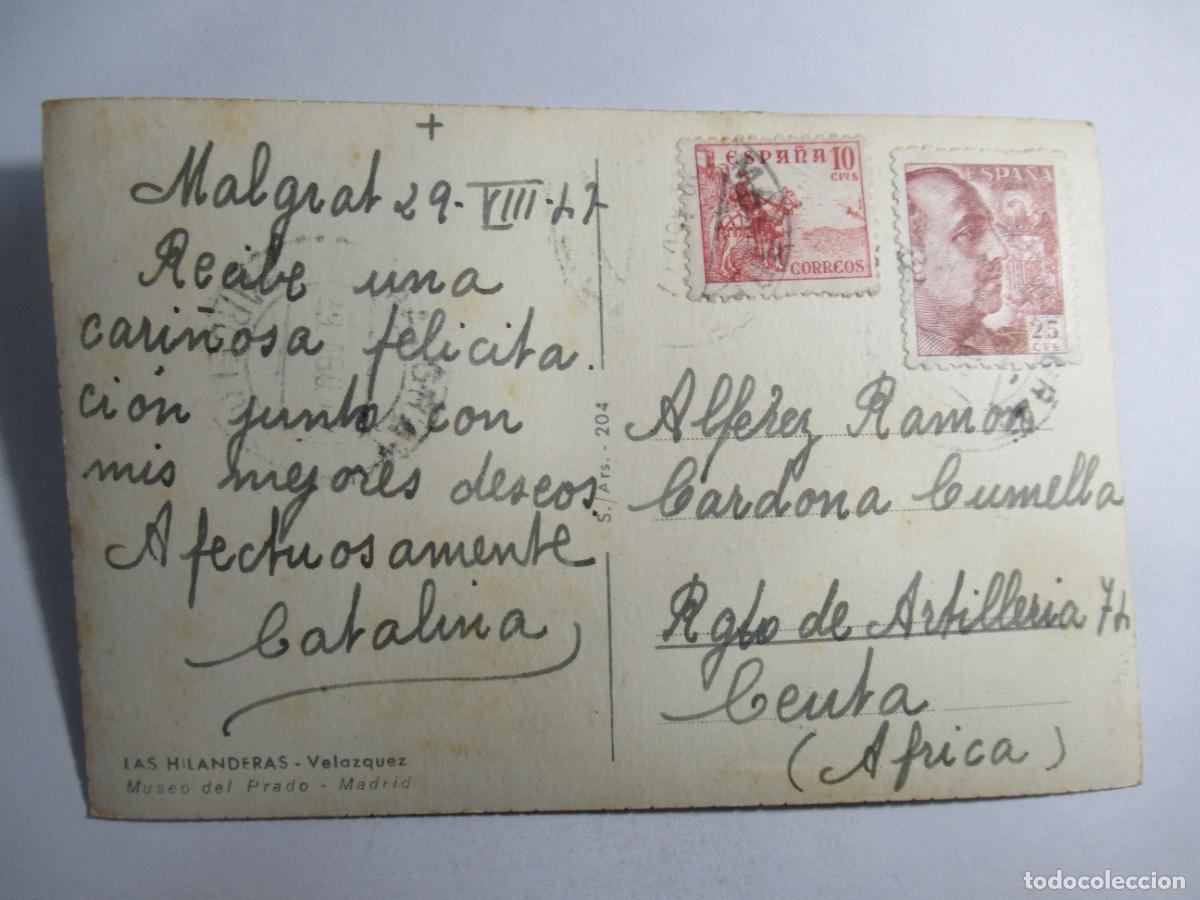 +
Malgrat 29-VIII-47
Recibe una
cariñosa felicita
ción junto con
mis mejores deseos.
Afectuosamente
Catalina
LAS HILANDERAS - Velazquez
Museo del Prado - Madrid
S. Ars. - 204
ESPAÑA 10
CTMS
CORREOS
ESPAÑA
25
CTS
Alférez Ramón
Cardona Cumella
Rgto de Artilleria 74
Ceuta
(Africa)
todocoleccion